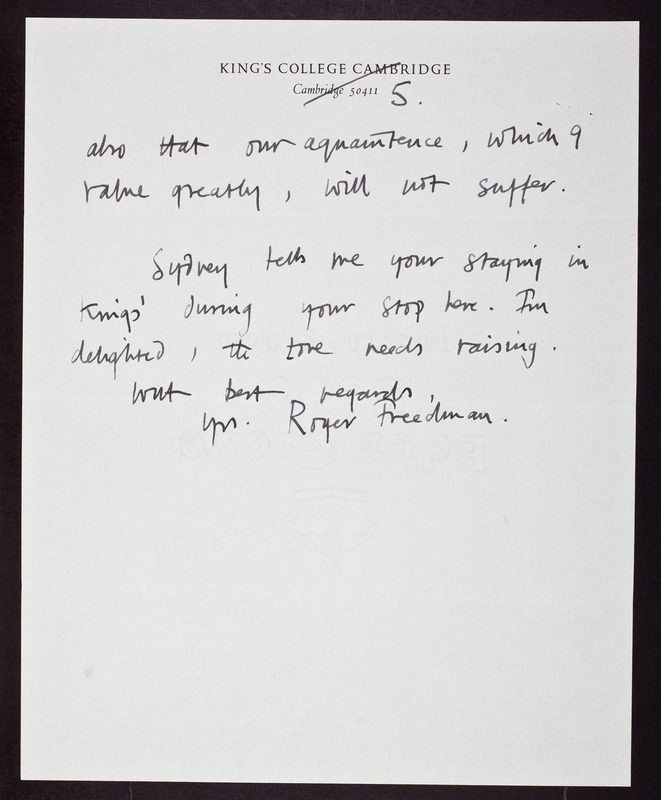 KING'S COLLEGE CAMBRIDGE
Cambridge 50411
5.
also that our aquaintence, which I
value greatly, will not suffer.
Sydney tells me your staying in
Kings' during your stop here. I'm
delighted, the tone needs raising.
With best regards,
yrs. Roger Freedman.